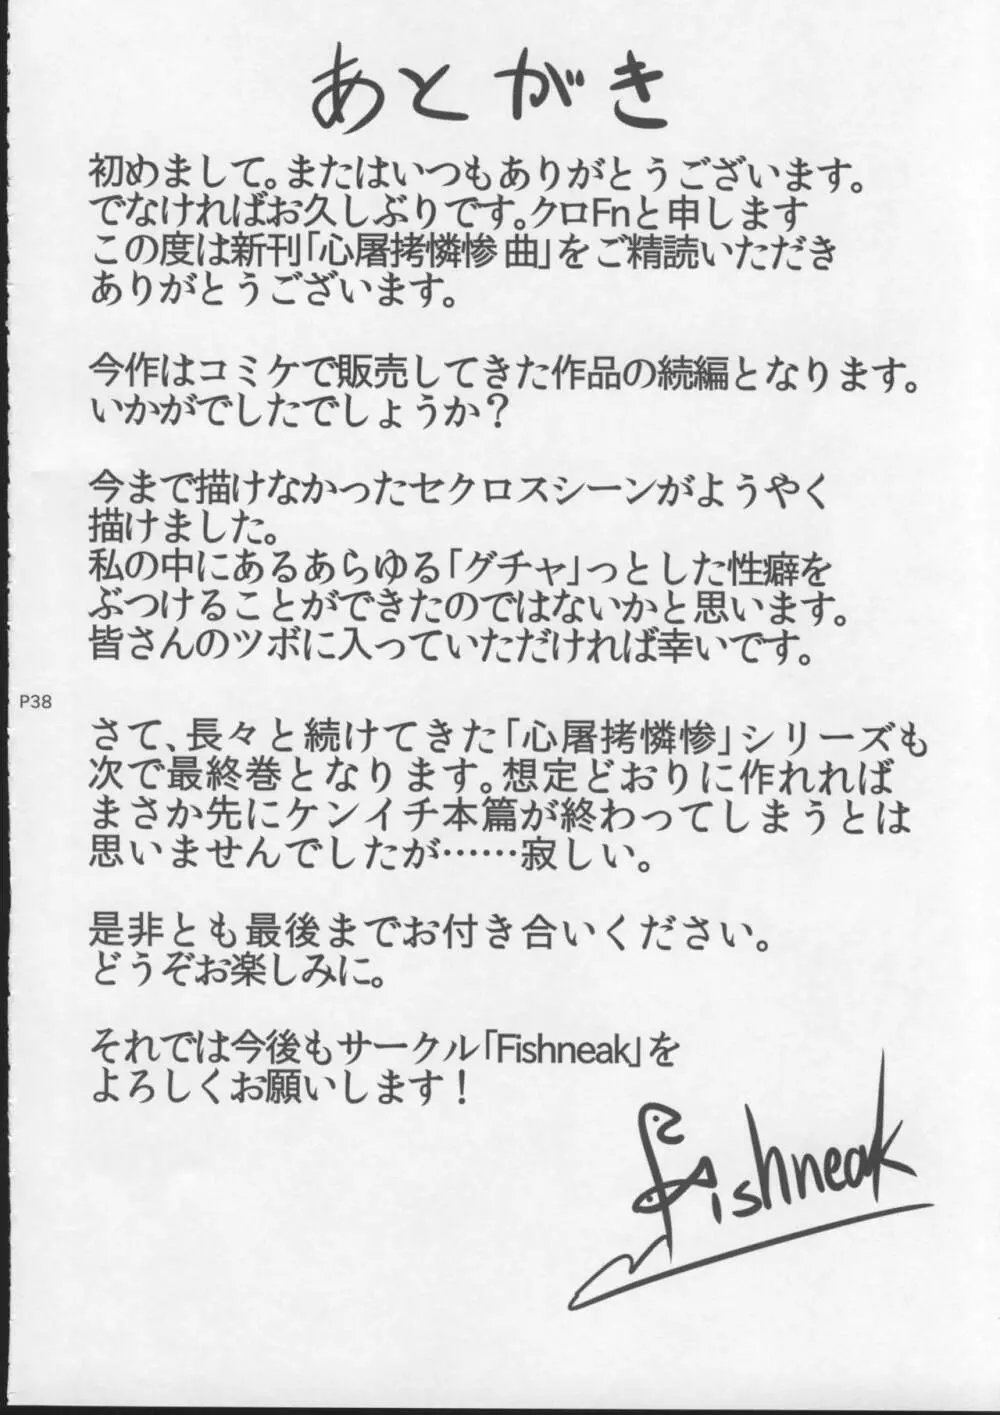 あとがき
初めまして。またはいつもありがとうございます。
でなければお久しぶりです。クロFnと申します
この度は新刊「心屠拷憐惨 曲」をご精読いただき
ありがとうございます。
今作はコミケで販売してきた作品の続編となります。
いかがでしたでしょうか？
今まで描けなかったセクロスシーンがようやく
描けました。
私の中にあるあらゆる「グチャ」っとした性癖を
ぶつけることができたのではないかと思います。
皆さんのツボに入っていただければ幸いです。
P38
さて、長々と続けてきた「心屠拷憐惨」シリーズも
次で最終巻となります。想定どおりに作れれば
まさか先にケンイチ本篇が終わってしまうとは
思いませんでしたが……寂しい。
是非とも最後までお付き合いください。
どうぞお楽しみに。
それでは今後もサークル「Fishneak」を
よろしくお願いします！
Fishneak